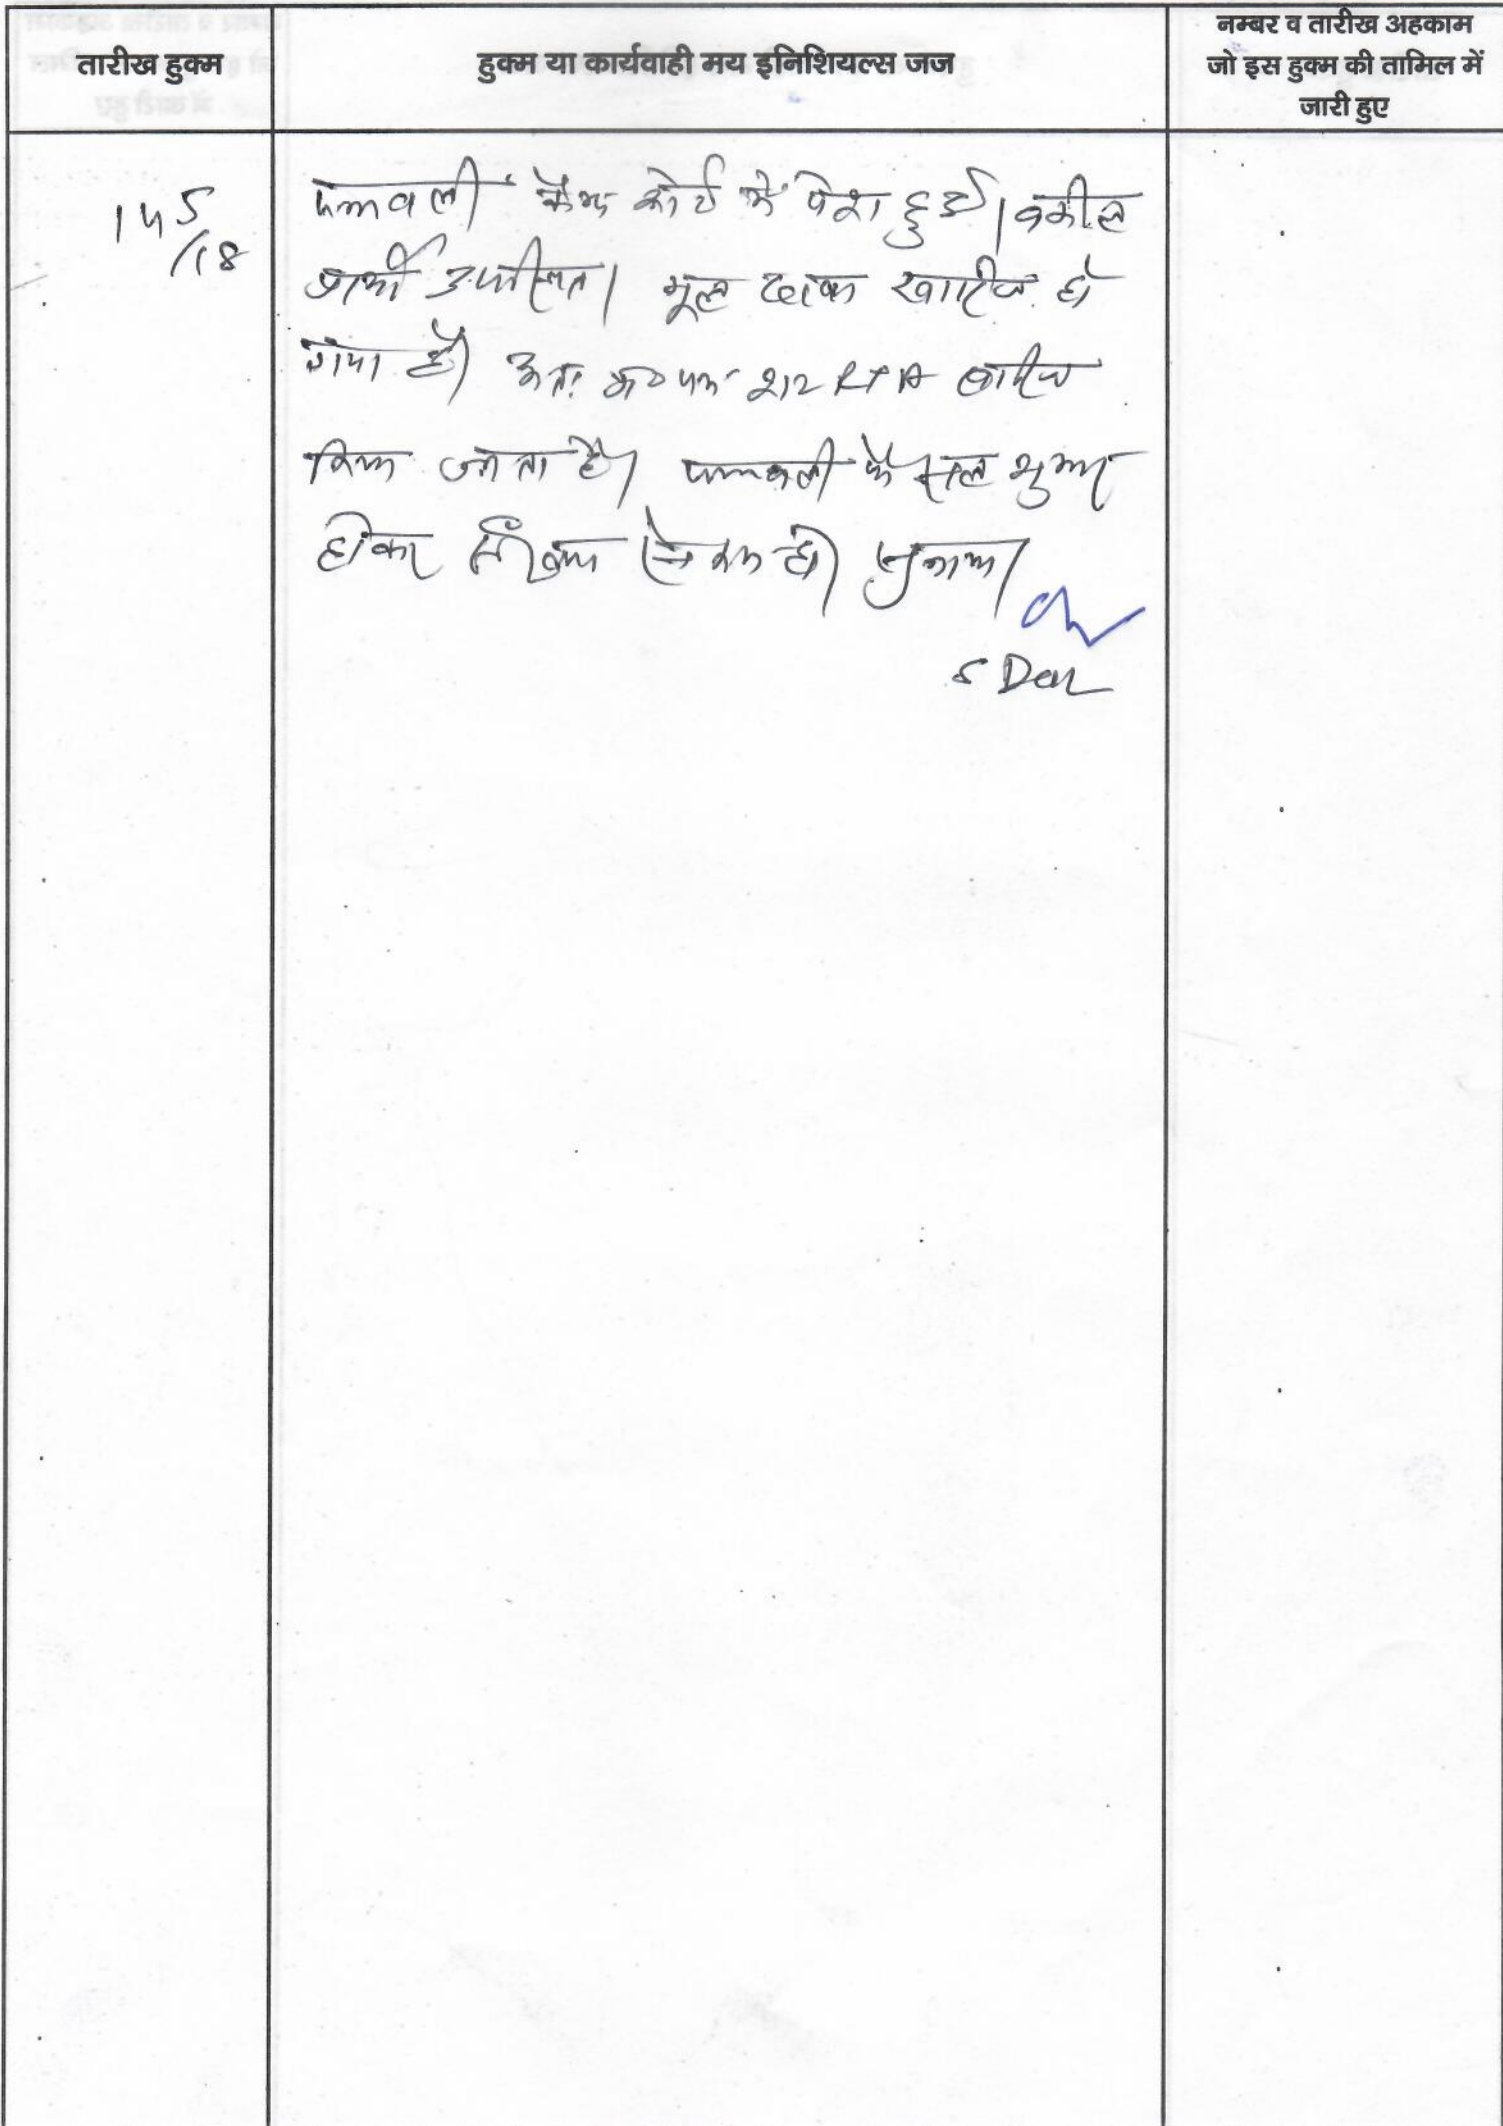 तारीख हुक्म
हुक्म या कार्यवाही मय इनिशियल्स जज
नम्बर व तारीख अहकाम
जो इस हुक्म की तामिल में
जारी हुए
14/5/18
पत्रावली कैम्प कोर्ट में पेश हुई। वकील
प्रार्थी उपस्थित। मूल खारीज हो
गया है। अतः 212 RTA खारीज
किया जाता है। पत्रावली फैसल शुमार
होकर हो।